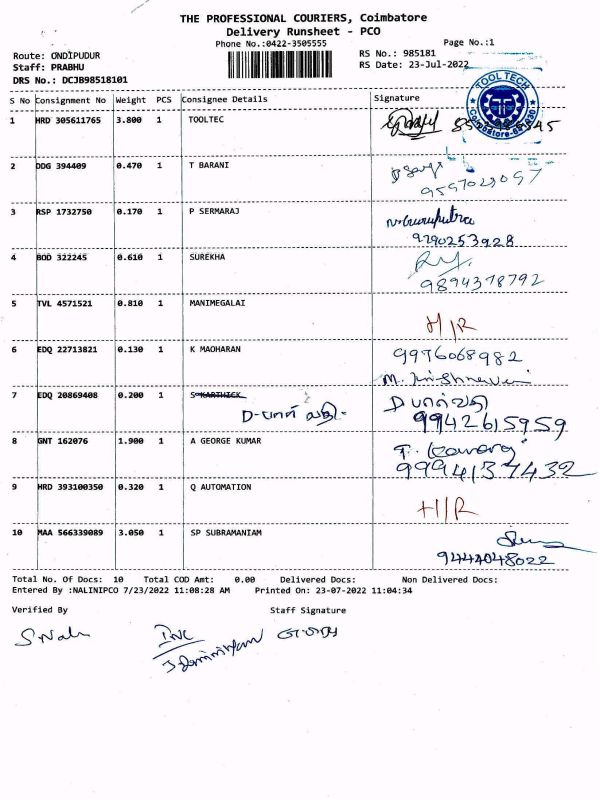 THE PROFESSIONAL COURIERS, Coimbatore
Delivery Runsheet - PCO
Phone No.:0422-3505555
Page No.:1
Route: ONDIPUDUR
RS No.: 985181
Staff: PRABHU
RS Date: 23-Jul-2022
DRS No.: DCJB98518101
TOOL TECH
S No Consignment No Weight PCS Consignee Details Signature
1 HRD 305611765 3.800 1 TOOLTEC
2 DDG 394409 0.470 1 T BARANI
9597023097
3 RSP 1732750 0.170 1 P SERMARAJ
9790253928
4 BOD 322245 0.610 1 SUREKHA
9894378792
5 TVL 4571521 0.810 1 MANIMEGALAI
H/R
6 EDQ 22713821 0.130 1 K MAOHARAN 9976068982
7 EDQ 20869408 0.200 1 S KARTHICK
9942615959
8 GNT 162076 1.900 1 A GEORGE KUMAR
9994137432
9 HRD 393100350 0.320 1 Q AUTOMATION H/R
10 MAA 566339089 3.050 1 SP SUBRAMANIAM
9444048022
Total No. Of Docs: 10 Total COD Amt: 0.00 Delivered Docs: Non Delivered Docs:
Entered By :NALINIPCO 7/23/2022 11:08:28 AM Printed On: 23-07-2022 11:04:34
Verified By Staff Signature